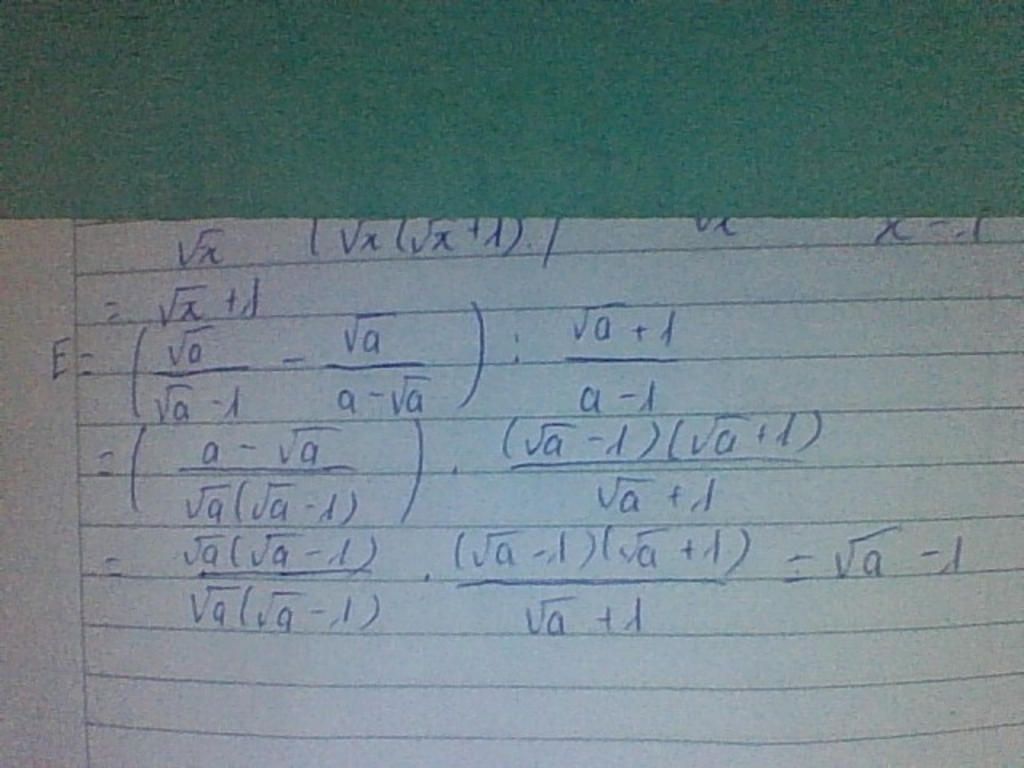 √x (√x(√x+1).) √x x-1
= √x + 1
E = (√a/(√a - 1) - √a/(a - √a)) : (√a + 1)/(a - 1)
= ((a - √a)/(√a(√a - 1))) . ((√a - 1)(√a + 1))/(√a + 1)
= (√a(√a - 1))/(√a(√a - 1)) . ((√a - 1)(√a + 1))/(√a + 1) = √a - 1